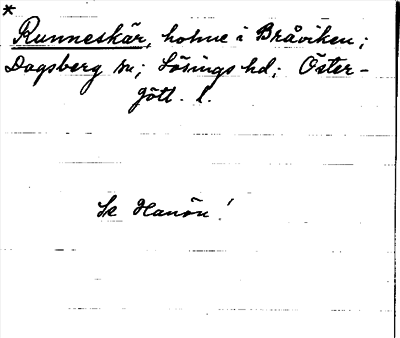 *
Runneskär, holme i Bråviken;
Dagsberg sn; Lösings hd; Öster-
götl. l.
Se Hanön!